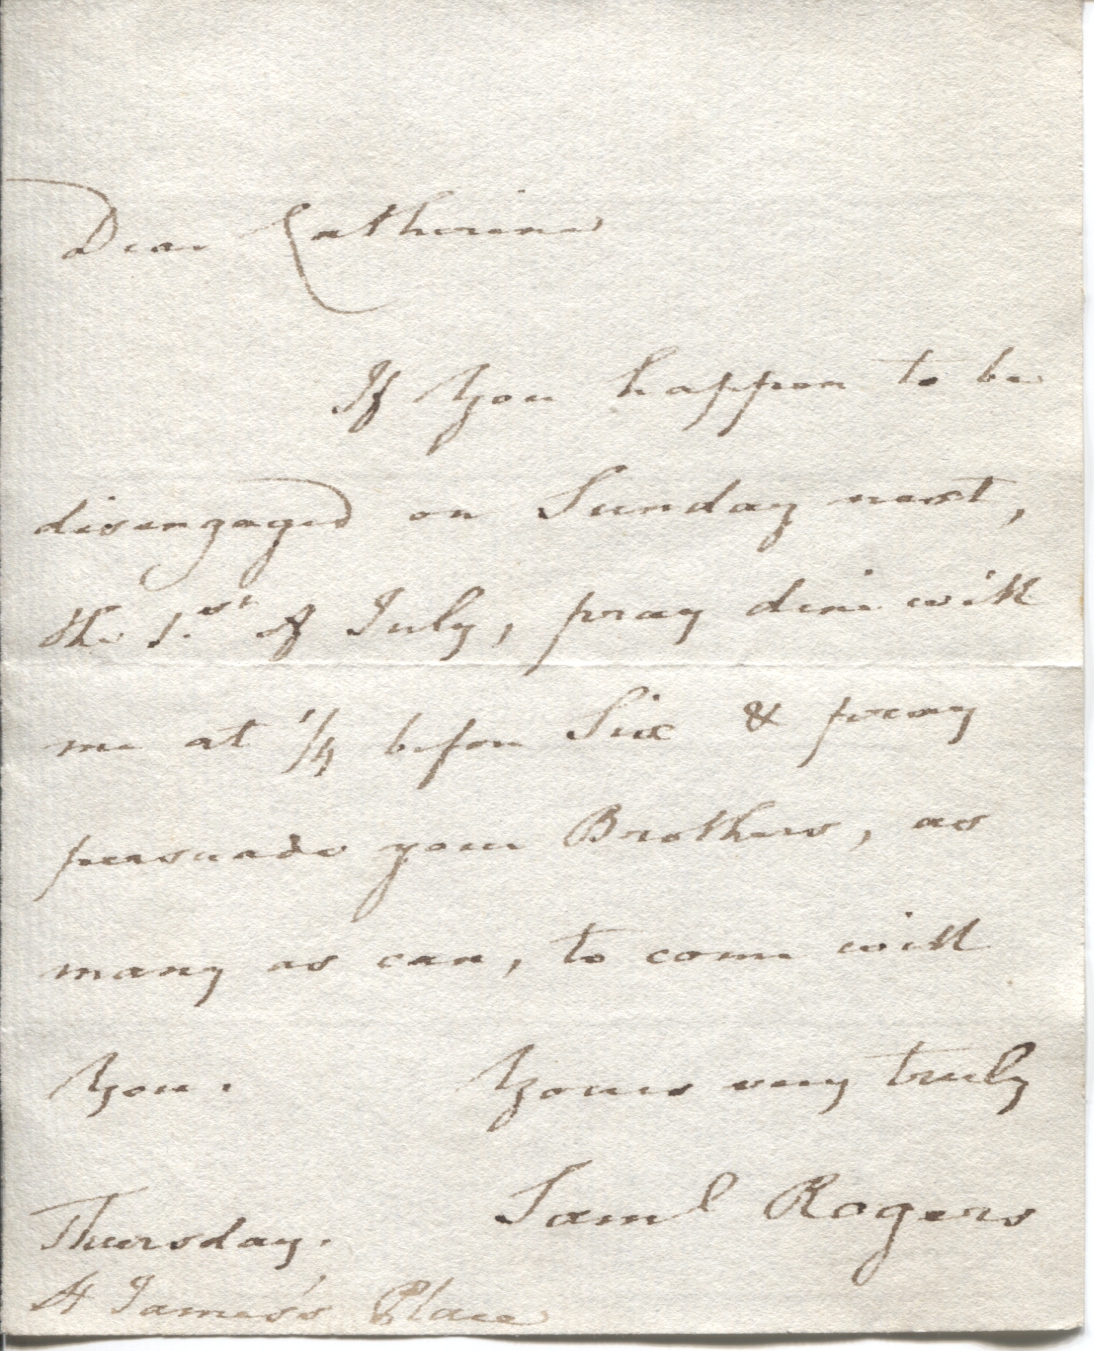 Dear Catherine
If You happen to be
disengaged on Sunday next,
the 1.st of July, pray dine with
me at 1/4 before Six & pray
persuade your Brothers, as
many as can, to come with
You. Yours very truly
Saml Rogers
Thursday.
St James's Place